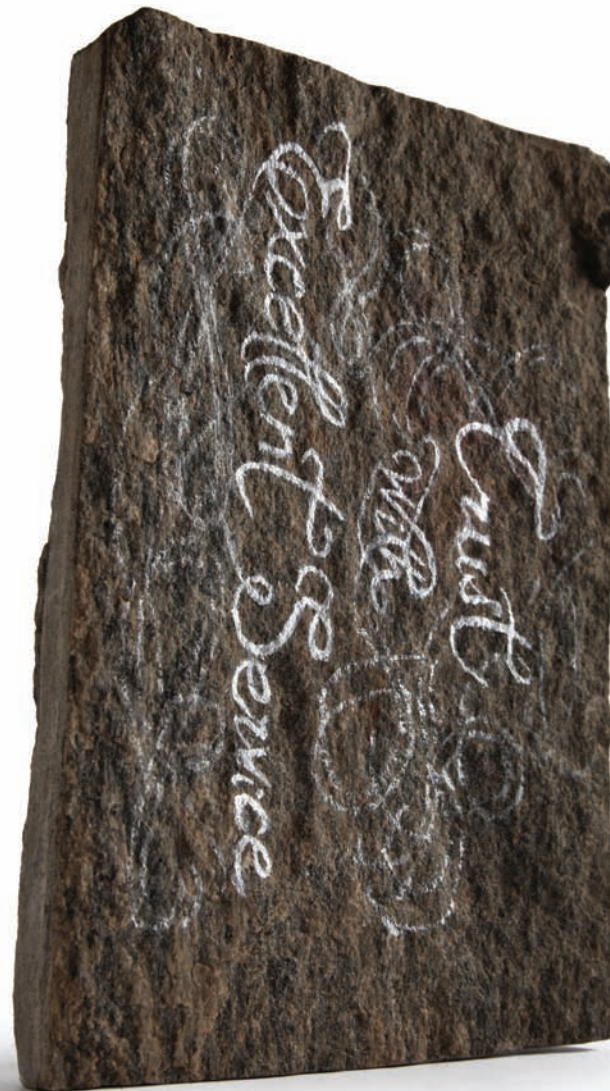 Trust
With
Excellent Service